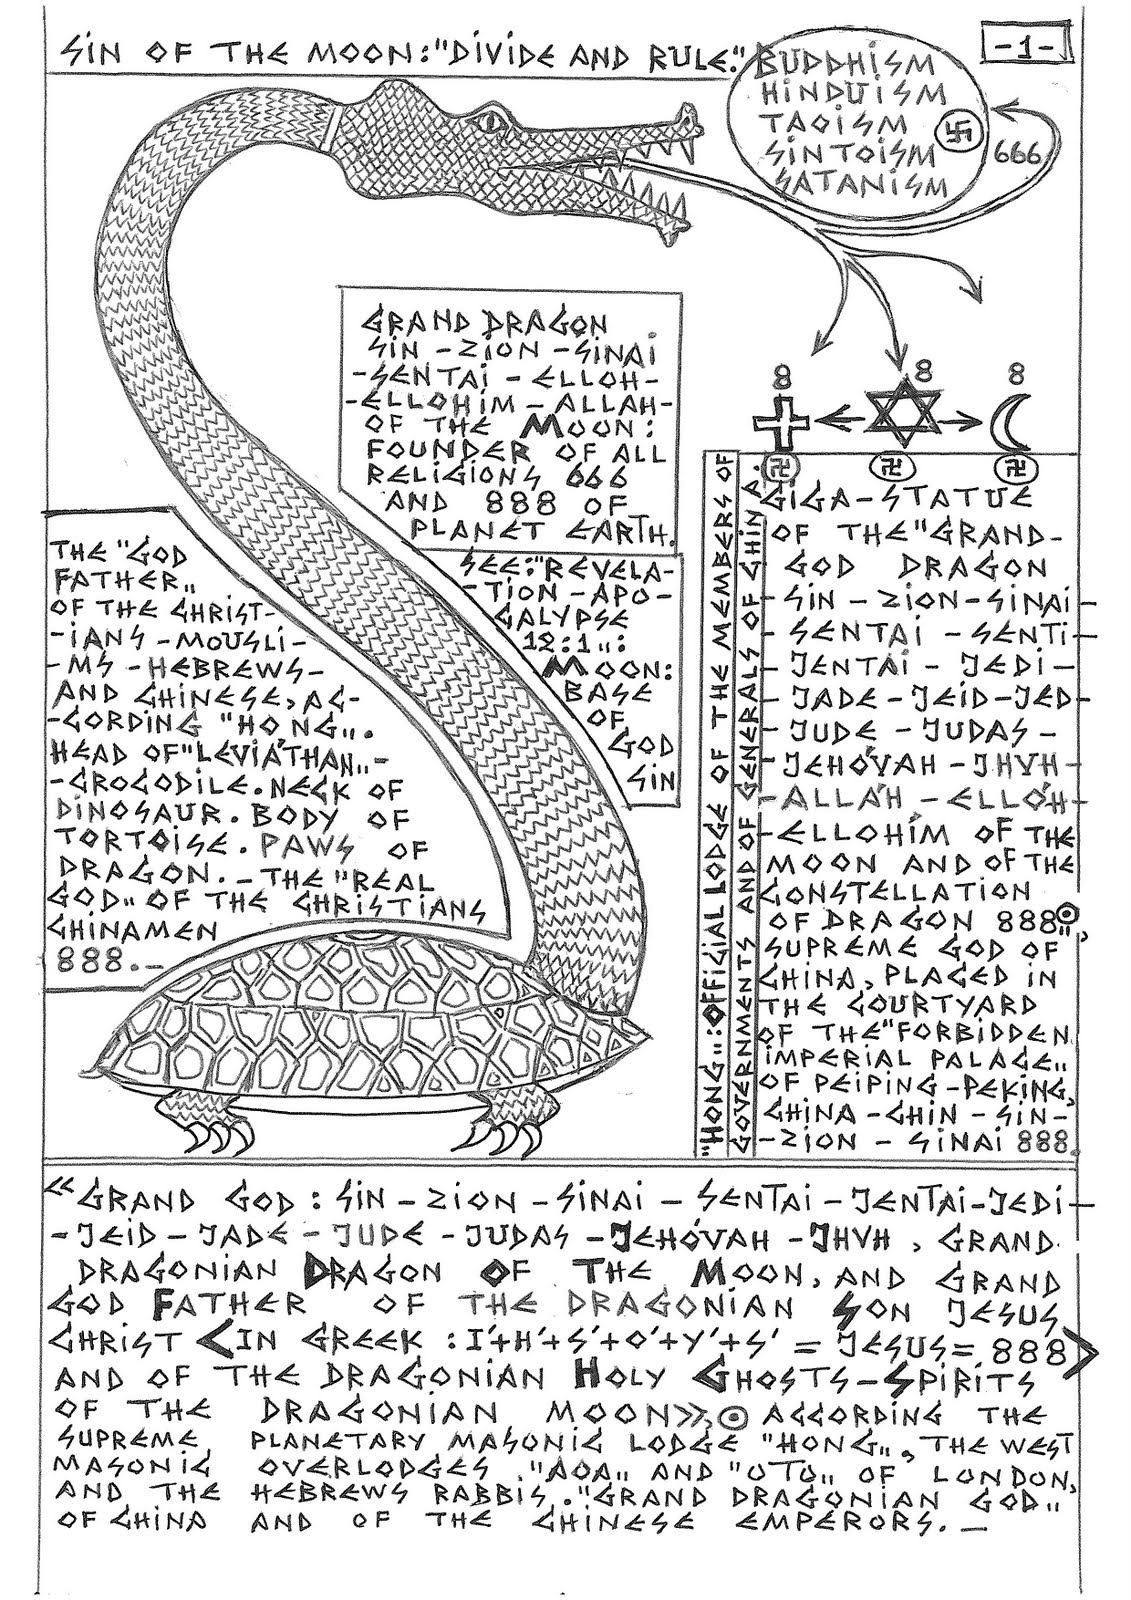 SIN OF THE MOON:"DIVIDE AND RULE."
-1-
BUDDHISM
HINDUISM
TAOISM
SINTOISM
SATANISM
卐
666
GRAND DRAGON
SIN - ZION - SINAI
- SENTAI - ELLOH -
- ELLOHIM - ALLAH -
OF THE MOON:
FOUNDER OF ALL
RELIGIONS 666
AND 888 OF
PLANET EARTH.
8 8 8
卍 卍 卍
THE "GOD
FATHER,,
OF THE CHRIST-
- IANS - MOUSLI -
- MS - HEBREWS -
AND CHINESE, AC-
- CORDING "HONG,,.
HEAD OF "LEVIATHAN,, -
- CROCODILE. NECK OF
DINOSAUR. BODY OF
TORTOISE. PAWS OF
DRAGON. _ THE "REAL
GOD,, OF THE CHRISTIANS
CHINAMEN
888._
SEE:"REVELA-
- TION - APO-
CALYPSE
12:1,,:
MOON:
BASE
OF
GOD
SIN
"HONG,,: OFFICIAL LODGE OF THE MEMBERS OF
GOVERNMENTS AND OF GENERALS OF CHINA.
GIGA - STATUE
OF THE "GRAND-
GOD DRAGON
SIN - ZION - SINAI -
- SENTAI - SENTI -
- JENTAI - JEDI -
- JADE - JEID - JED -
- JUDE - JUDAS -
- JEHÓVAH - JHVH -
- ALLÁH - ELLÓH -
- ELLOHÍM OF THE
MOON AND OF THE
CONSTELLATION
OF DRAGON 888⊙,,,
SUPREME GOD OF
CHINA, PLACED IN
THE COURTYARD
OF THE "FORBIDDEN
IMPERIAL PALACE,,
OF PEIPING - PEKING,
CHINA - CHIN - SIN -
- ZION - SINAI 888.
«GRAND GOD : SIN - ZION - SINAI - SENTAI - JENTAI - JEDI -
- JEID - JADE - JUDE - JUDAS - JEHÓVAH - JHVH , GRAND
DRAGONIAN DRAGON OF THE MOON, AND GRAND
GOD FATHER OF THE DRAGONIAN SON JESUS
CHRIST <IN GREEK : I'+H'+S'+O'+Y'+S' = JESUS = 888>
AND OF THE DRAGONIAN HOLY GHOSTS - SPIRITS
OF THE DRAGONIAN MOON»,⊙ ACCORDING THE
SUPREME PLANETARY MASONIC LODGE "HONG,,, THE WEST
MASONIC OVERLODGES "AOA,, AND "OTO,, OF LONDON,
AND THE HEBREWS RABBIS. "GRAND DRAGONIAN GOD,,
OF CHINA AND OF THE CHINESE EMPERORS. _